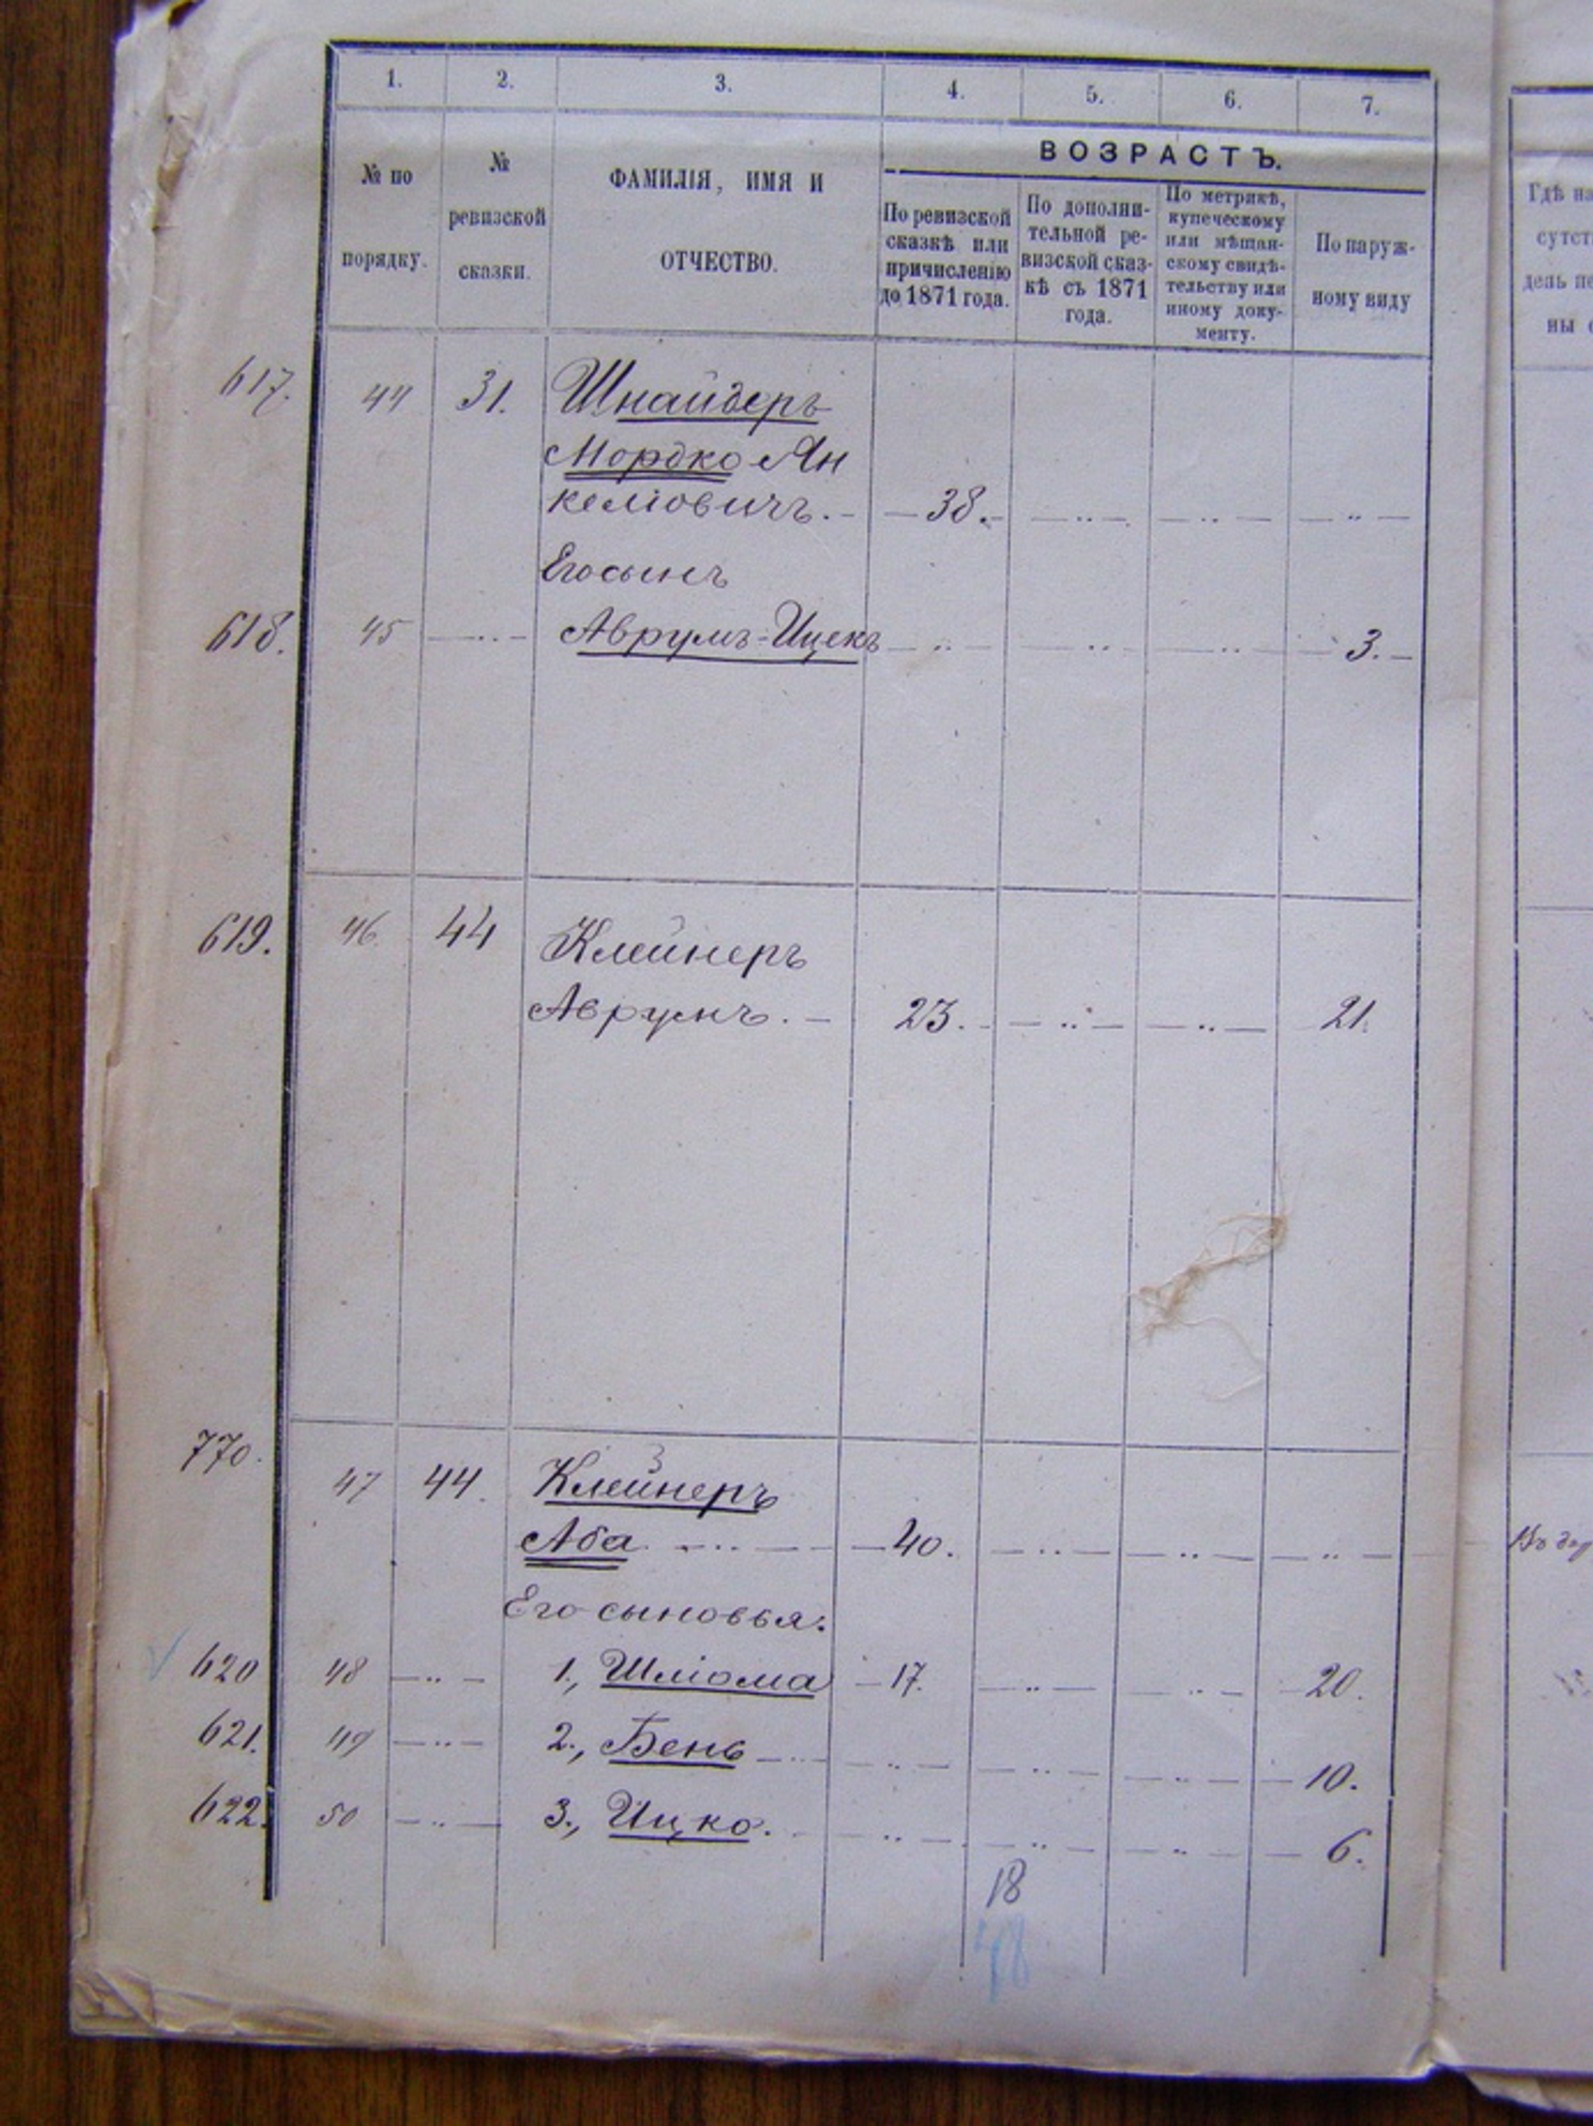 1. 2. 3. 4. 5. 6. 7.
ВОЗРАСТЪ.
№ по
порядку.
№
ревизской
сказки.
ФАМИЛІЯ, ИМЯ И
ОТЧЕСТВО.
По ревизской
сказкѣ или
причисленію
до 1871 года.
По дополни-
тельной ре-
визской сказ-
кѣ съ 1871
года.
По метрикѣ,
купеческому
или мѣщан-
скому свидѣ-
тельству или
иному доку-
менту.
По наруж-
ному виду
617. 44 31. Шнайдеръ
Мордко Ян
келіовичъ. 38.
Его сынъ
618. 45 Аврумъ-Ицекъ 3.
619. 46. 44 Клейнеръ
Аврумъ. 23. 21.
770. 47 44. Клейнеръ
Аба 40.
Его сыновья:
620 48 1., Шліома 17. 20.
621. 49 2., Бень 10.
622. 50 3., Ицко. 6.
18